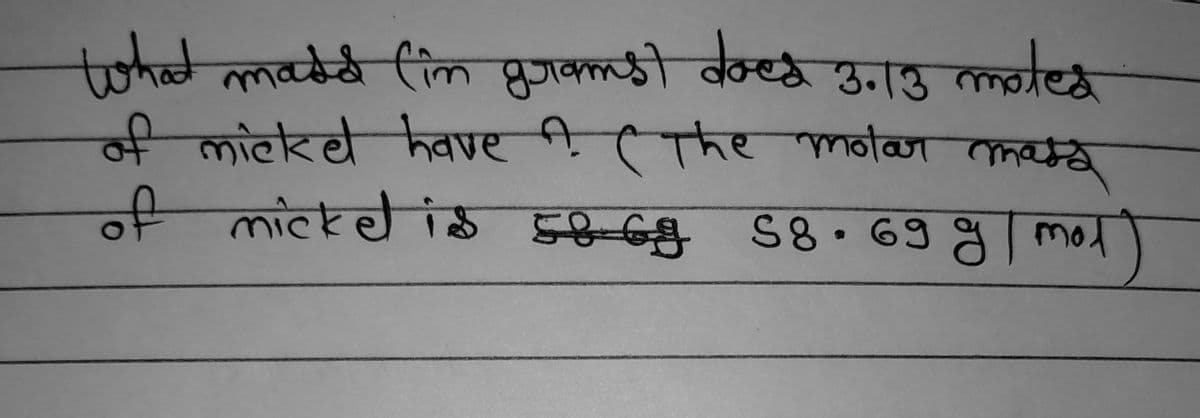 What mass (in grams) does 3.13 moles
of nickel have ? (The molar mass
of nickel is 58.69 58.69 g/mol)